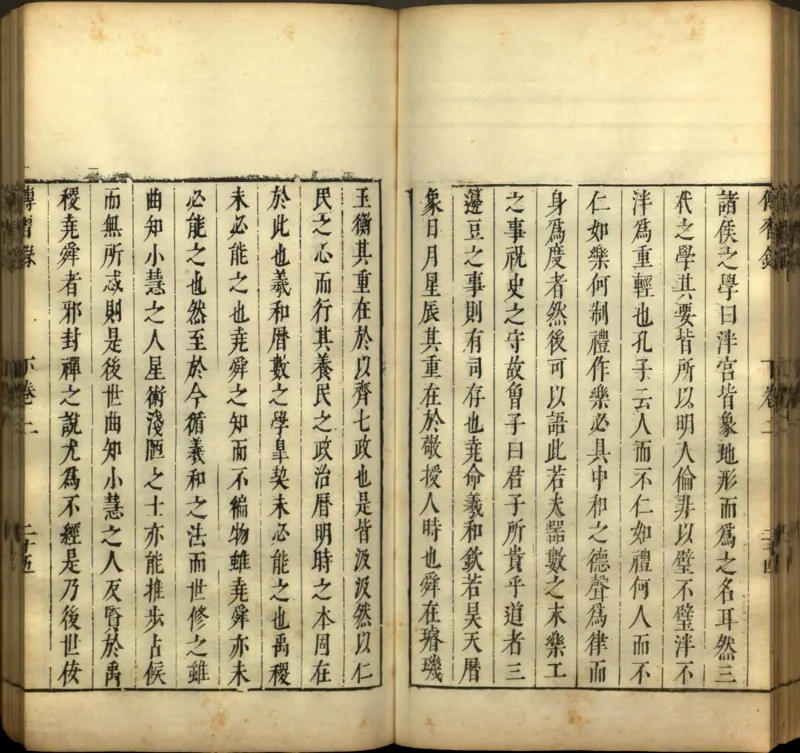 諸侯之學曰泮宮皆象地形而爲之名耳然三
代之學其要皆所以明人倫非以璧不璧泮不
泮爲重輕也孔子云人而不仁如禮何人而不
仁如樂何制禮作樂必具中和之德聲爲律而
身爲度者然後可以語此若夫器數之末樂工
之事祝史之守故曾子曰君子所貴乎道者三
籩豆之事則有司存也堯命羲和欽若昊天曆
象日月星辰其重在於敬授人時也舜在璿璣
玉衡其重在於以齊七政也是皆汲汲然以仁
民之心而行其養民之政治曆明時之本固在
於此也羲和曆數之學臯契未必能之也禹稷
未必能之也堯舜之知而不徧物雖堯舜亦未
必能之也然至於今循羲和之法而世修之雖
曲知小慧之人星術淺陋之士亦能推步占候
而無所忒則是後世曲知小慧之人反賢於禹
稷堯舜者邪封禪之說尤爲不經是乃後世佞
傳習錄
下卷二
二十五